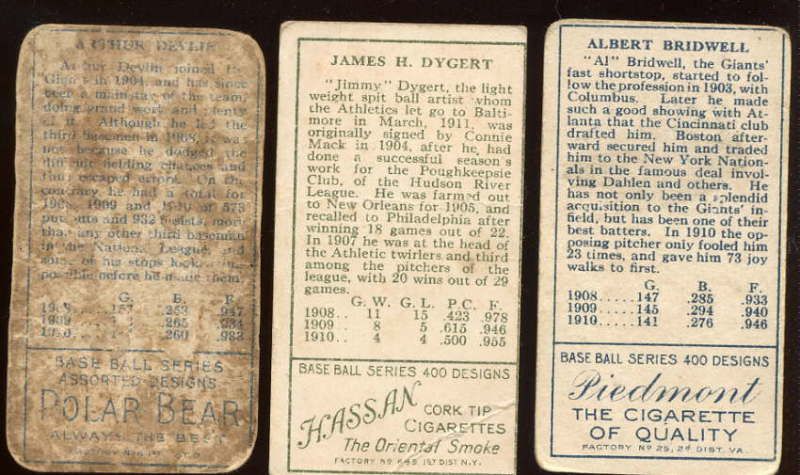 ARTHUR DEVLIN
Arthur Devlin joined the
Giants in 1904, and has since
been a mainstay of the team,
doing grand work and plenty
of it. Although he led the
third basemen in 1908, it was
not because he dodged the
difficult fielding chances and
thus escaped errors. On the
contrary he had a total for
1908, 1909 and 1910 of 573
put outs and 932 assists, more
than any other third baseman
in the National League, and
some of his stops looked
possible before he made them.
G. B. F.
1908 157 .253 .947
1909 .265
1910 .260
BASE BALL SERIES
ASSORTED DESIGNS
POLAR BEAR
ALWAYS THE BEST
FACTORY No
JAMES H. DYGERT
"Jimmy" Dygert, the light
weight spit ball artist whom
the Athletics let go to Balti-
more in March, 1911, was
originally signed by Connie
Mack in 1904, after he had
done a successful season's
work for the Poughkeepsie
Club, of the Hudson River
League. He was farmed out
to New Orleans for 1905, and
recalled to Philadelphia after
winning 18 games out of 22.
In 1907 he was at the head of
the Athletic twirlers and third
among the pitchers of the
league, with 20 wins out of 29
games.
G. W. G. L. P.C. F.
1908.. 11 15 .423 .978
1909.. 8 5 .615 .946
1910.. 4 4 .500 .955
BASE BALL SERIES 400 DESIGNS
HASSAN
CORK TIP
CIGARETTES
The Oriental Smoke
FACTORY No 649 1ST DIST. N.Y.
ALBERT BRIDWELL
"Al" Bridwell, the Giants'
fast shortstop, started to fol-
low the profession in 1903, with
Columbus. Later he made
such a good showing with At-
lanta that the Cincinnati club
drafted him. Boston after-
ward secured him and traded
him to the New York Nation-
als in the famous deal invol-
ving Dahlen and others. He
has not only been a splendid
acquisition to the Giants' in-
field, but has been one of their
best batters. In 1910 the op-
posing pitcher only fooled him
23 times, and gave him 73 joy
walks to first.
G. B. F.
1908......147 .285 .933
1909......145 .294 .940
1910......141 .276 .946
BASE BALL SERIES 400 DESIGNS
Piedmont
THE CIGARETTE
OF QUALITY
FACTORY No 25, 2d DIST. VA.